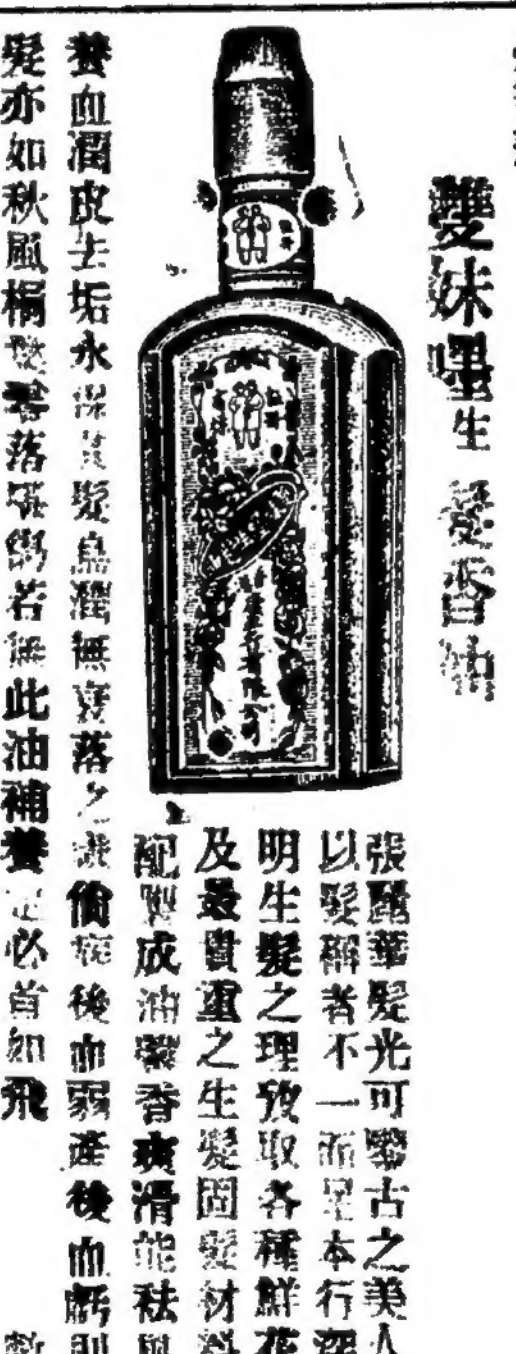 雙妹嚜生髮香油
張麗華髮光可鑒古之美人
以髮稱者不一而足本行深
明生髮之理攷取各種鮮花
及最貴重之生髮固髮材料
配製成油馨香爽滑能祛風
養血潤皮去垢永保其髮烏潤無衰落之患倘病後血弱產後血虧則
髮亦如秋風桐葉零落殆盡若無此油補養勢必首如飛